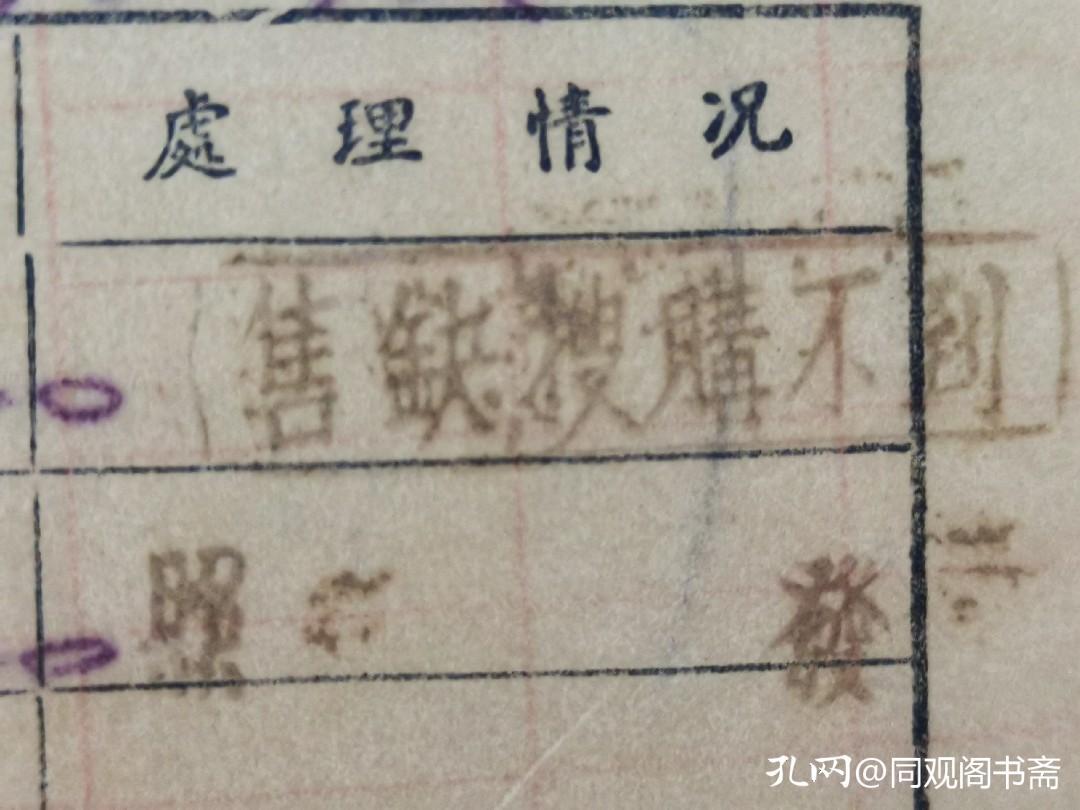 處理情况
售缺搜購不到
照 發
孔网@同观阁书斋